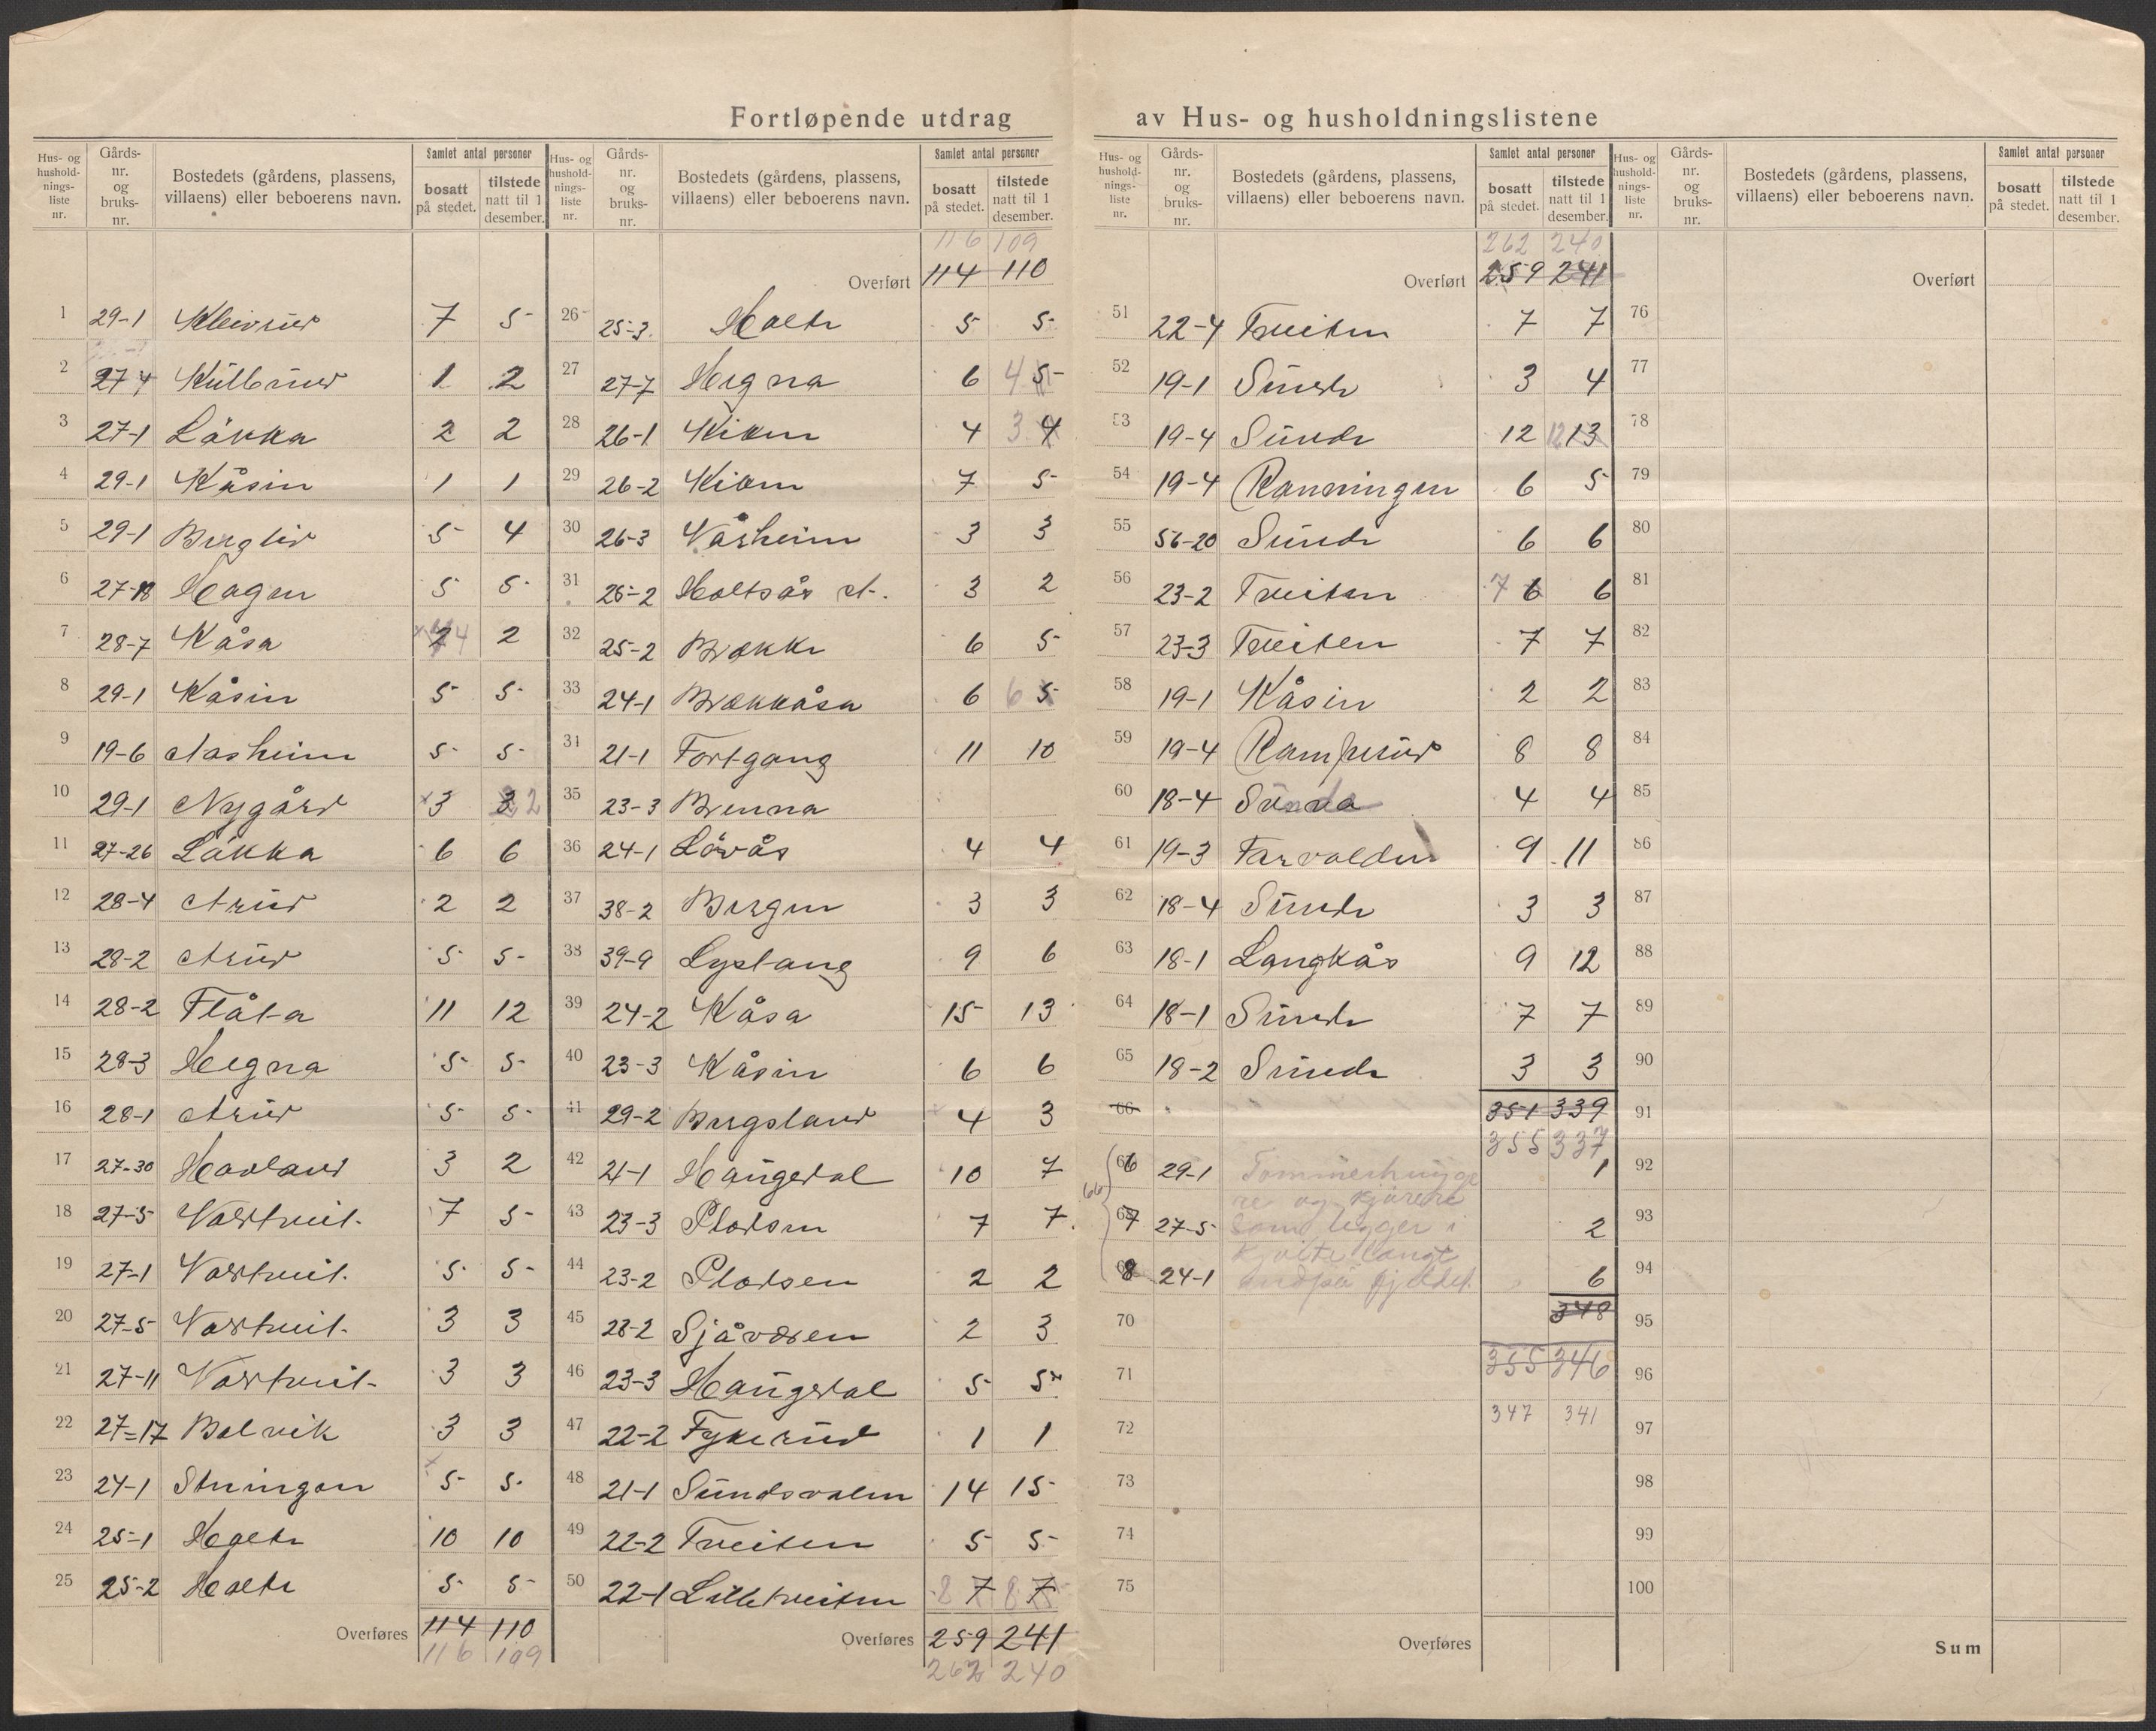 Fortløpende utdrag av Hus- og husholdningslistene
Hus- og hushold- nings- liste nr. | Gårds- nr. og bruks- nr. | Bostedets (gårdens, plassens, villaens) eller beboerens navn. | Samlet antal personer | bosatt på stedet. | tilstede natt til 1 desember.
1 29-1 Kleivrud 7 5
2 27 4 Kullerud 1 2
3 27-1 Løkka 2 2
4 29-1 Kåsin 1 1
5 29-1 Berglid 5 4
6 27-18 Hagen 5 5
7 28-7 Kåsa 2 4 2
8 29-1 Kåsin 5 5
9 19-6 Aasheim 5 5
10 29-1 Nygård 3 3 2
11 27-26 Løkka 6 6
12 28-4 Arud 2 2
13 28-2 Arud 5 5
14 28-2 Flåta 11 12
15 28-3 Hegna 5 5
16 28-1 Arud 5 5
17 27-30 Havland 3 2
18 27-5 Nordtveit 7 5
19 27-1 Nordtveit 5 5
20 27-5 Nordtveit 3 3
21 27-11 Nordtveit 3 3
22 27-17 Bolvik 3 3
23 24-1 5 5
24 25-1 Holte 10 10
25 25-2 Holte 5 5
Overføres 114 110
116 109
Hus- og hushold- nings- liste nr. | Gårds- nr. og bruks- nr. | Bostedets (gårdens, plassens, villaens) eller beboerens navn. | Samlet antal personer | bosatt på stedet. | tilstede natt til 1 desember.
116 109
Overført 114 110
26 25-3 Holte 5 5
27 27-7 Hegna 6 4 5
28 26-1 Kiken 4 3 4
29 26-2 Kiken 7 5
30 26-3 Vårheim 3 3
31 25-2 Holtsås st. 3 2
32 25-2 Brække 6 5
33 24-1 Brækkåsa 6 6 5
34 21-1 Fortgang 11 10
35 23-3 Brenna
36 24-1 Løvås 4 4
37 38-2 Bergen 3 3
38 39-9 Lystang 9 6
39 24-2 Kåsa 15 13
40 23-3 Kåsin 6 6
41 29-2 Bergsland 4 3
42 21-1 Haugedal 10 7
43 23-3 Plassen 7 7
44 23-2 Plassen 2 2
45 28-2 2 3
46 23-3 Haugedal 5 5
47 22-2 Fykerud 1 1
48 21-1 Sundsvalen 14 15
49 22-2 Tveiten 5 5
50 22-1 Lilletveiten 8 7 8 7
Overføres 259 241
262 240
Hus- og hushold- nings- liste nr. | Gårds- nr. og bruks- nr. | Bostedets (gårdens, plassens, villaens) eller beboerens navn. | Samlet antal personer | bosatt på stedet. | tilstede natt til 1 desember.
262 240
Overført 259 241
51 22-4 Tveiten 7 7
52 19-1 Sunde 3 4
53 19-4 Sunde 12 12 13
54 19-4 Rønningen 6 5
55 56-20 Sunde 6 6
56 23-2 Tveiten 7 6 6
57 23-3 Tveiten 7 7
58 19-1 Kåsin 2 2
59 19-4 Ramperud 8 8
60 18-4 4 4
61 19-3 Farvolden 9 11
62 18-4 Sunde 3 3
63 18-1 Langkås 9 12
64 18-1 Sunde 7 7
65 18-2 Sunde 3 3
66 351 339
355 337
66 29-1 Tømmerhugge 1
re og kjørere
67 27-5 som ligger i 2
langt
68 24-1 indpå fjeldet. 6
70 348
71 355 346
72 347 341
73
74
75
Overføres
Hus- og hushold- nings- liste nr. | Gårds- nr. og bruks- nr. | Bostedets (gårdens, plassens, villaens) eller beboerens navn. | Samlet antal personer | bosatt på stedet. | tilstede natt til 1 desember.
Overført
76
77
78
79
80
81
82
83
84
85
86
87
88
89
90
91
92
93
94
95
96
97
98
99
100
Sum